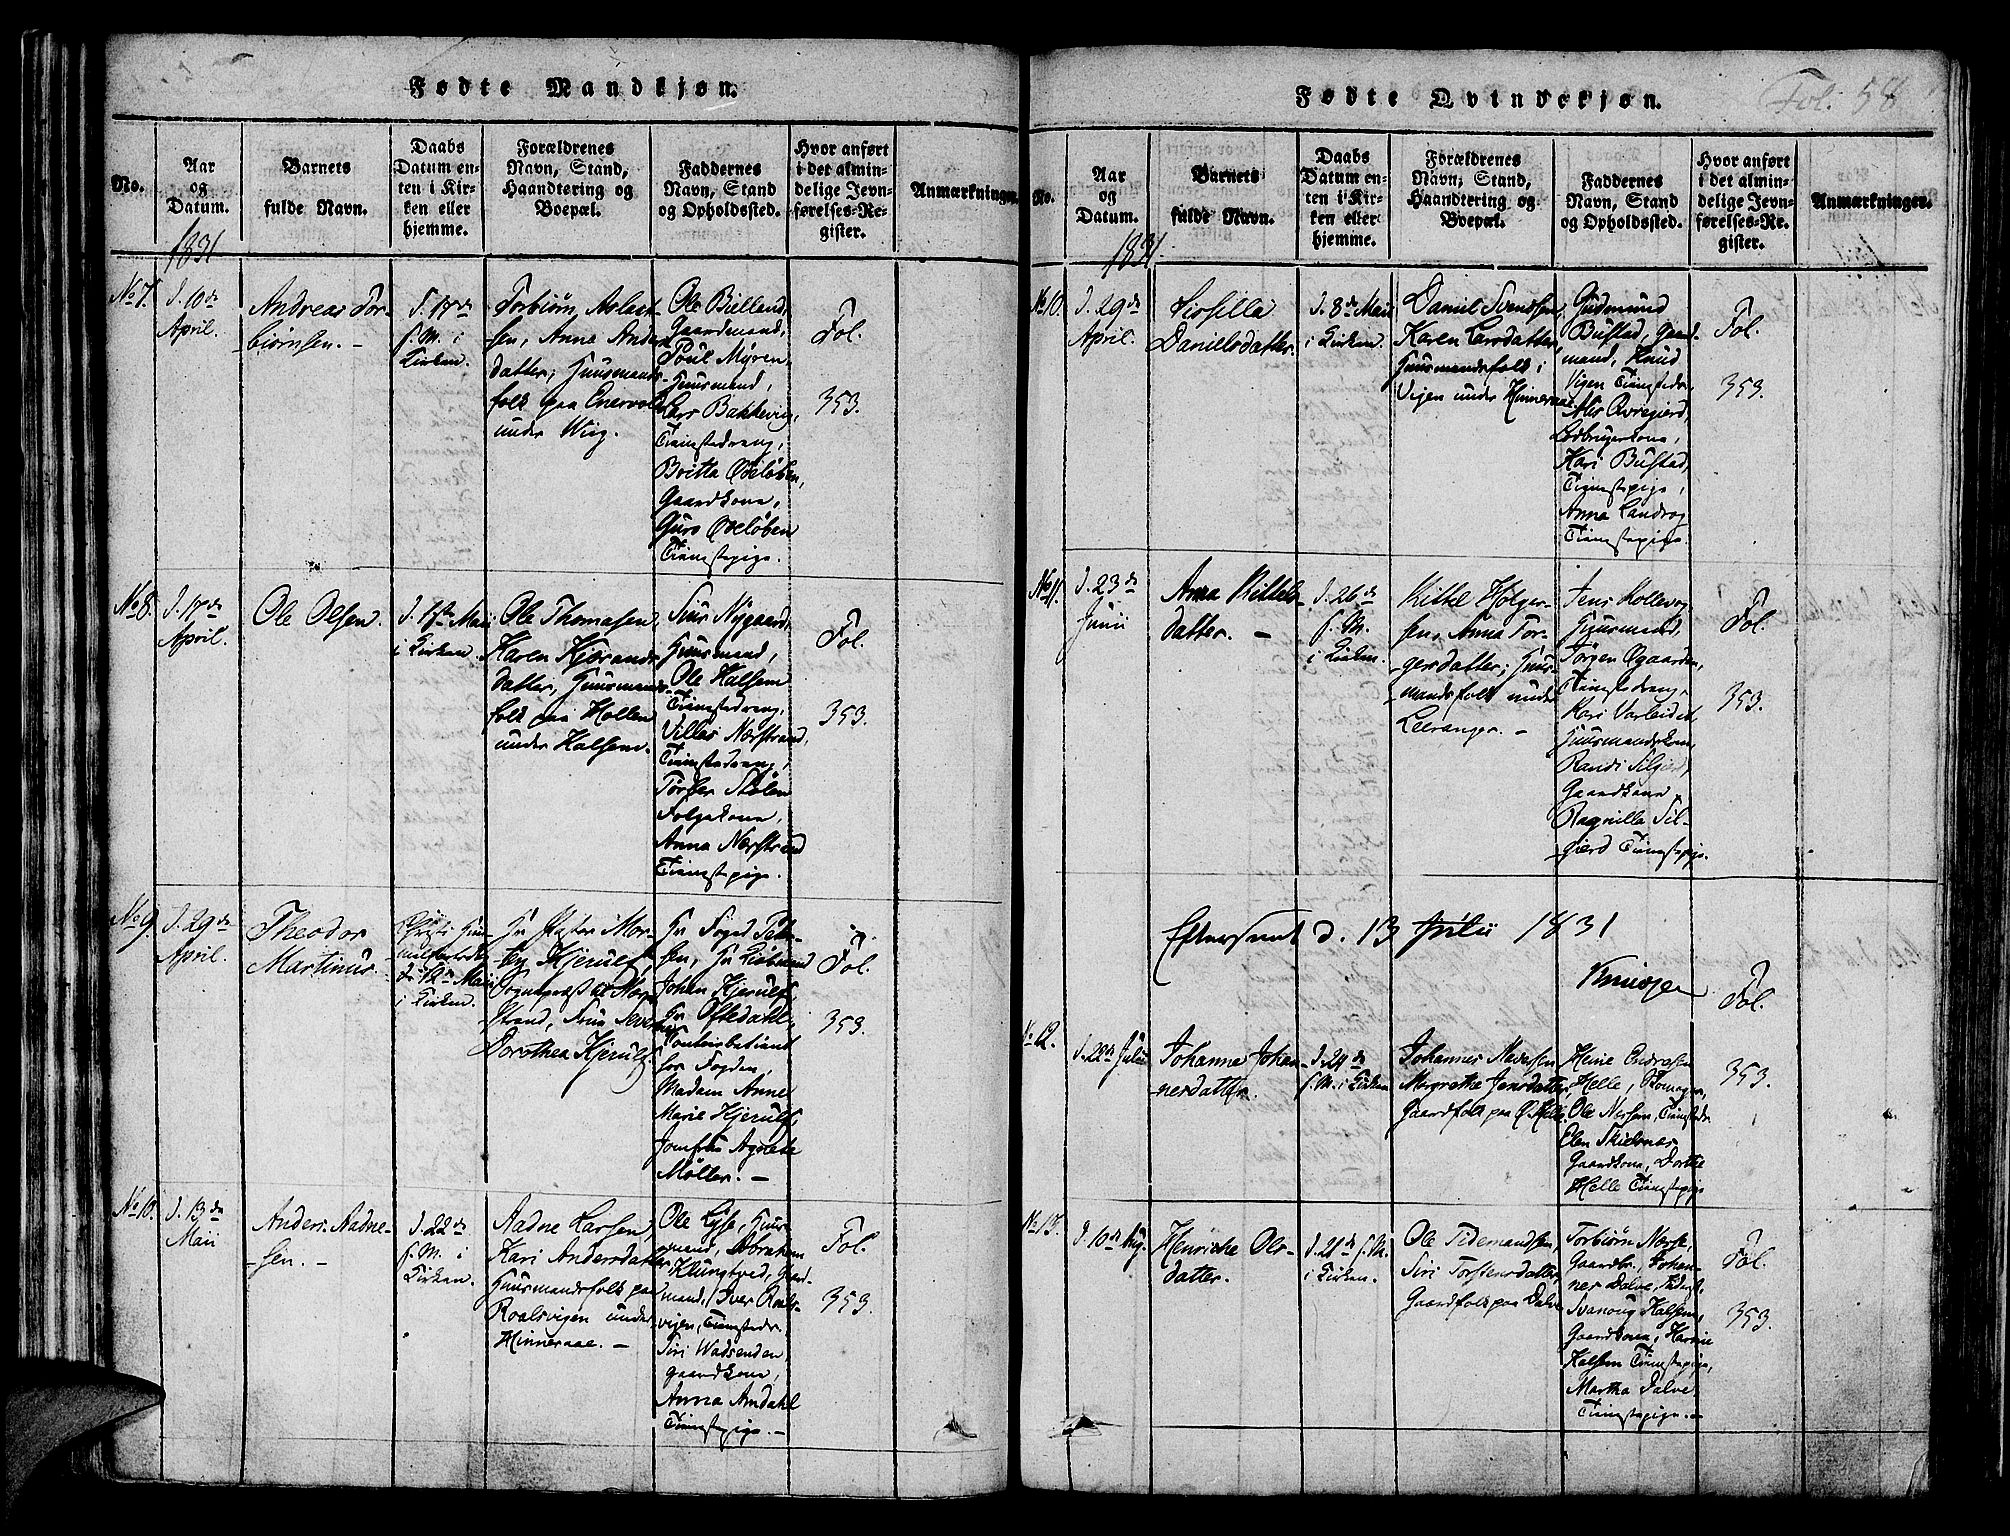 Fødte Mandkjøn.
No.
Aar
og
Datum.
Barnets
fulde Navn.
Daabs
Datum en-
ten i Kir-
ken eller
hjemme.
Forældrenes
Navn, Stand,
Haandtering og
Boepæl.
Faddernes
Navn, Stand
og Opholdssted.
Hvor anført
i det almin-
delige Jevn-
førelses-Re-
gister.
Anmærkninger.
1831
No 7.
d. 10de
April.
Andreas Tor-
biørnsen. -
d. 17de
s. M. i
Kirken.
Torbiørn Aslak-
sen, Anna Anders
datter, Huusmands-
folk paa Enervold
under Wiig.
Ole Birkeland,
Gaardmand,
Poul Myren,
Huusmand,
Lars Bakkevig,
Tienestedreng,
Britta Ødeløben,
Gaardkone,
Guro Ødeløben
Tienestepige.
Fol.
353.
No 8.
d. 17de
April.
Ole Olsen.
d. 1ste Maii
i Kirken.
Ole Thomasen,
Karen Kjørands
datter, Huusmands-
folk paa Hollen
under Halsem.
Siur Nygaard,
Huusmand,
Ole Halsem
Tienestedreng,
Villas Nærstrand,
Tienestedreng,
Torber Stølen
Folgekone,
Anna Nærstrand
Tienestepige.
Fol.
353.
No 9.
d. 29de
April.
Theodor
Martinus.
Christi Him-
melfartsda
d. 12te Maii
i Kirken.
Hr Pastor Mor-
ten Kjerulf,
Sognepræst til Nær-
strand, Frue Severine
Dorothea Kjerulf.
Hr Foged Peter-
sen, Hr Kiøbmand
Johan Kjerulf,
Hr Oftedahl,
Contoirbetient
hos Fogden,
Madam Anne
Marie Kjerulf,
Jomfru Agnete
Møller. -
Fol.
353.
No 10.
d. 13de
Maii
Anders Aadne-
sen. -
d. 22de
s. M. i
Kirken.
Aadne Larsen,
Kari Andersdatter
Huusmandsfolk paa
Roalsvigen under
Hinneraae. -
Ole Lysse, Huus-
mand, Abraham
Klungtved, Gaard-
mand, Iver Roals-
vigen, Tienestedr.
Siri Wadsenden,
gaardkone,
Anna Amdahl
Tienestepige. -
Fol.
353.
Fødte Qvindekjøn.
Fol. 58
No.
Aar
og
Datum.
Barnets
fulde Navn.
Daabs
Datum en-
ten i Kir-
ken eller
hjemme.
Forældrenes
Navn, Stand,
Haandtering og
Boepæl.
Faddernes
Navn, Stand
og Opholdssted.
Hvor anført
i det almin-
delige Jevn-
førelses-Re-
gister.
Anmærkninger.
1831.
No 10.
d. 29de
April.
Sissilla
Danielsdatter.
d. 8de Maii
i Kirken.
Daniel Svendsen,
Karen Larsdatter,
Huusmandsfolk i
Vigen under Hinneraae
Gudmund
Bustad, Gaard-
mand, Knud
Vigen Tienestedr.
Kari Bustad,
Tienestepige,
Anna Landrog
Tienestepige.
Fol.
353.
No 11.
d. 23de
Junii
Anna Kittels-
datter. -
d. 26de
s. M.
i Kirken.
Kittel Holger-
sen, Anna Tor-
gersdatter, Huus-
mandsfolk under
Leeranger. -
Jens Kollevog
Huusmand,
Jørgen Øgaarden,
Tienestedreng,
Kari Varleidet
Huusmandskone,
Randi Silgierd,
Gaardkone,
Ragnilla Sil-
gierd Tienestepige.
Fol.
353.
Efterseet d. 13 Julii 1831
Fol.
353.
No 12.
d. 22de Julii
Johanna Johan-
nesdatter.
d. 24de
s. M. i Kirken
Johannes Madsen
Margrethe Jensdatter,
Gaardfolk paa Ø. Helle
Heine Endresen
Helle,
Ole Nessem, Tienestedr.
Elen Skielnes
Gaardkone, Dorthe
Helle Tienestepige
No 13.
d. 10de Aug.
Henriche Ols-
datter.
d. 21de s. M.
i Kirken.
Ole Tidemandsen,
Siri Torstensdatter,
Gaardfolk paa Dalve
Torbiørn Norse,
Gaardbr. Johan-
nes Dalve, Tidst,
Svanoug Halsem,
Gaardkone, Karine
Halsem Tienestepige,
Martha Dalve
Tienestepige. -
Fol.
353.